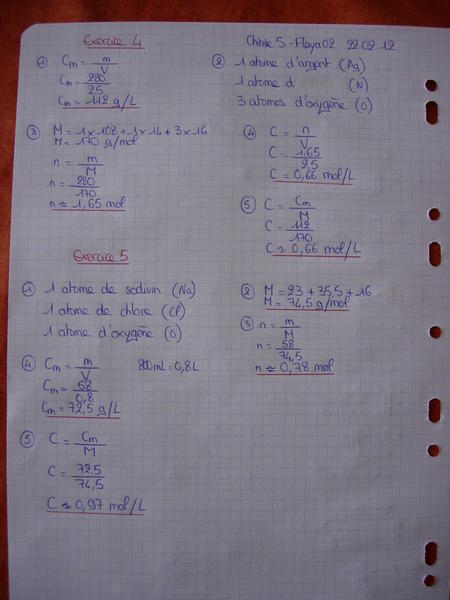 Exercice 4
Chimie 5 - Flaya02 22.02.12
① Cm = m/V
Cm = 280/2,5
Cm = 112 g/L
② 1 atome d'argent (Ag)
1 atome d (N)
3 atomes d'oxygène (O)
③ M = 1 x 108 + 1 x 14 + 3 x 16
M = 170 g/mol
n = m/M
n = 280/170
n ≈ 1,65 mol
④ C = n/V
C = 1,65/2,5
C = 0,66 mol/L
⑤ C = Cm/M
C = 112/170
C ≈ 0,66 mol/L
Exercice 5
① 1 atome de sodium (Na)
1 atome de chlore (Cl)
1 atome d'oxygène (O)
② M = 23 + 35,5 + 16
M = 74,5 g/mol
③ n = m/M
n = 58/74,5
n ≈ 0,78 mol
④ Cm = m/V 800 mL = 0,8 L
Cm = 58/0,8
Cm = 72,5 g/L
⑤ C = Cm/M
C = 72,5/74,5
C ≈ 0,97 mol/L